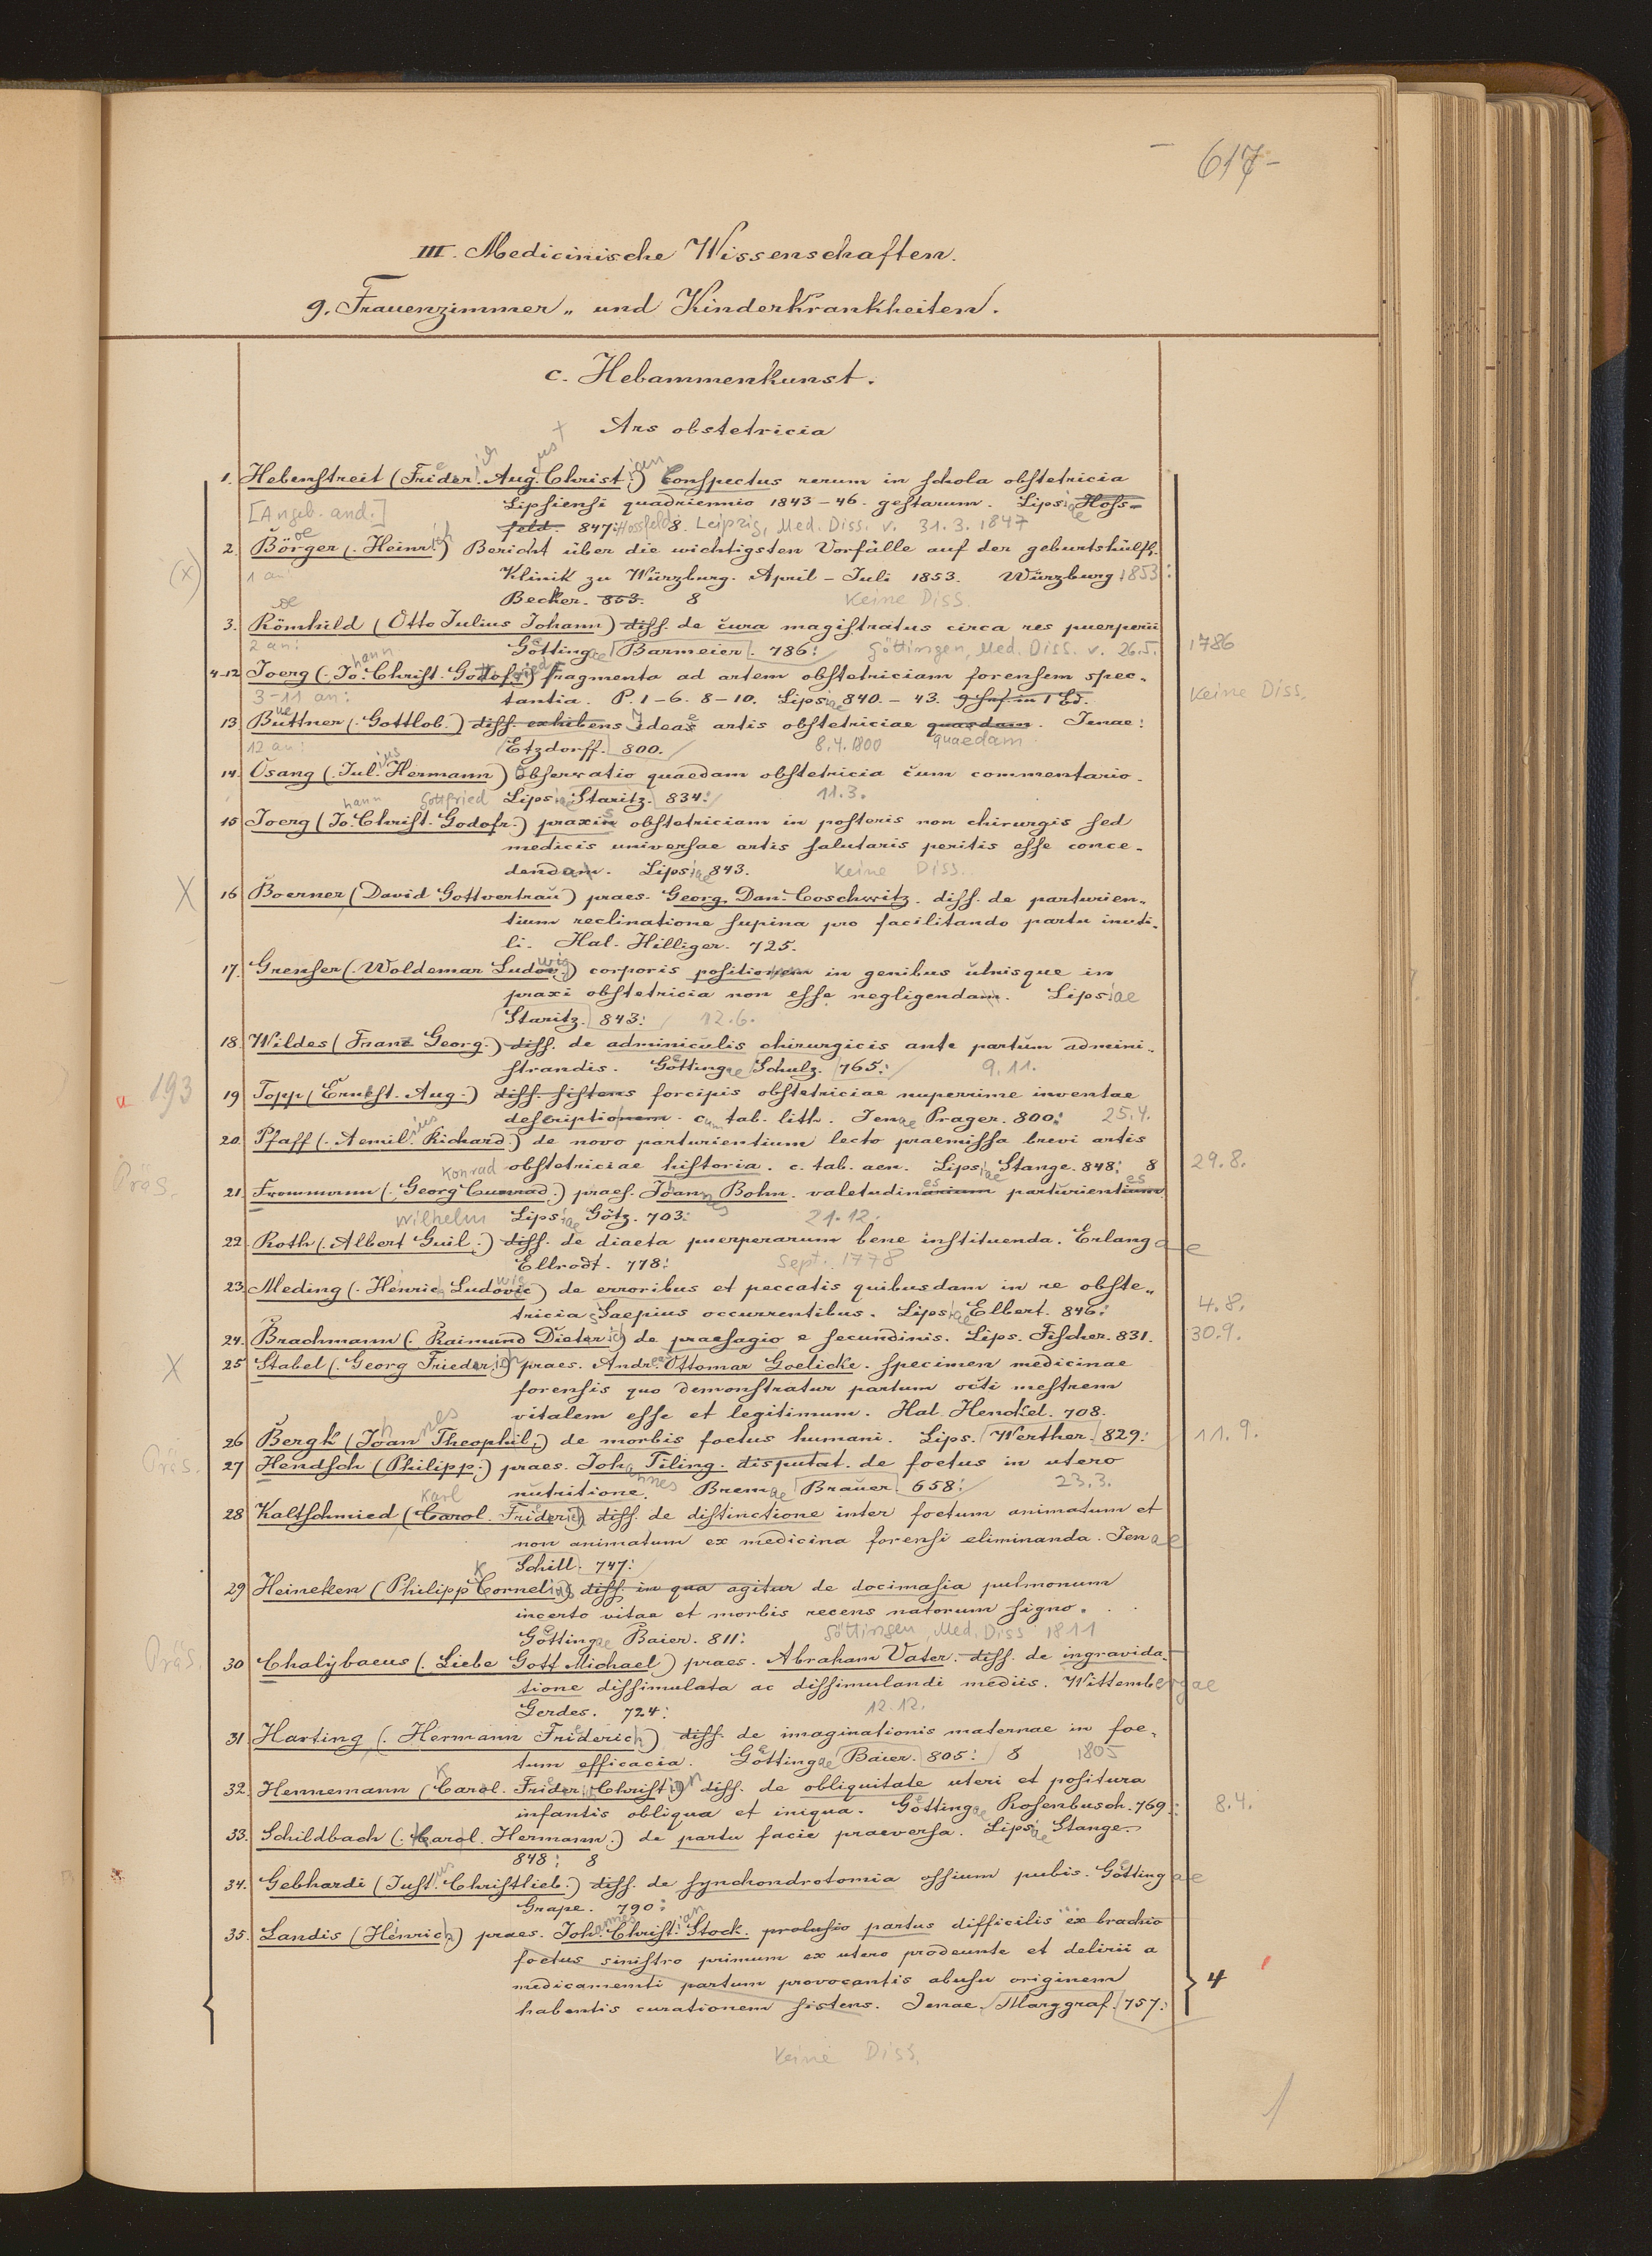 - 617-
III. Medicinische Wissenschaften.
g. Frauenzimmer„ und Kinderkrankheiten.
c. Hebammenkunst.
Ars obstetricia
1. Hebenstreit (Frieder. Aug. Christ.) Conspectus rerum in schola obstetricia
Lipsiensi quadriennio 1843-46. gestarum. Lipsiae Hoss-
[Angeb. and.] feld. 847: Hossfeld 8. Leipzig, Med. Diss. v. 31.3.1847
2. Börger (. Heinrich) Bericht über die wichtigsten Vorfälle auf der geburtshülfl.
(x) 1 an: Klinik zu Würzburg. April - Juli 1853. Würzburg 1853:
Becker. 853. 8 Keine Diss.
3. Römhild (Otto Julius Johann) diss. de cura magistratus circa res puerperii
2 an: Göttingae Barmeier. 786: Göttingen, Med. Diss. v. 26.5. 1786
4-12 Joerg (. Johann Christ. Gottofried) fragmenta ad artem obstetriciam forensem spec„
3-11 an: tantia. P. 1-6. 8-10. Lipsiae 840.-43. Keine Diss.
13. Buettner (. Gottlob.) diss. exhibens Ideae artis obstetriciae quasdam. Jenae:
12 an: Etzdorff. 800. 8.4.1800 quaedam
14. Osang (. Julius Hermann) observatio quaedam obstetricia cum commentario.
Lipsiae Staritz. 834: 11.3.
15 Joerg (Johann Christ. Godofr.) Gottfried praxis obstetriciam in posteris non chirurgis sed
medicis universae artis salutaris peritis esse conce„
dendam. Lipsiae 843. Keine Diss.
X 16 Boerner (David Gottvertrau) praes. Georg. Dan. Coschwitz. diss. de parturien„
tium reclinatione supina pro facilitando partu inuti„
li. Hal. Hilliger. 725.
17. Grenser (. Woldemar Ludowig) corporis positionem in genibus ulnisque in
praxi obstetricia non esse negligendam. Lipsiae
Staritz. 843: 12.6.
18. Wildes (Franz Georg.) diss. de adminiculis chirurgicis ante partum admini„
strandis. Göttingae Schulz. 765: 9.11.
193 19 Topp (Ernst. Aug.) diss. sistens forcipis obstetriciae nuperrime inventae
descriptionem. cum tab. lith. Jenae Prager. 800: 25.4.
20. Pfaff (. Aemilius Richard.) de novo parturientium lecto praemissa brevi artis
obstetriciae historia. c. tab. aen. Lipsiae Stange. 848: 8 29.8.
Präs. 21. Frommann (. Georg Cunrad.) Konrad praes. Johannes Bohn. valetudinarium parturientium
Lipsiae Götz. 703: 21.12.
22. Roth (. Albert Guil.) Wilhelm diss. de diaeta puerperarum bene instituenda. Erlangae
Ellrodt. 778: Sept. 1778
23. Meding (. Henric. Ludovic) de erroribus et peccatis quibusdam in re obste„
tricia saepius occurrentibus. Lipsiae Elbert. 846: 4.8.
24. Brachmann (. Raimund Dieterich) de praesagio e secundinis. Lips. Fischer. 831. 30.9.
X 25 Stabel (. Georg Friederich) praes. Andreas Ottomar Goelicke. specimen medicinae
forensis quo demonstratur partum octi mestrem
vitalem esse et legitimum. Hal. Henckel. 708.
26 Bergk (Johannes Theophil.) de morbis foetus humani. Lips. Werther. 829: 11.9.
Präs. 27 Hendsch (Philipp.) praes. Johannes Tiling. disputat. de foetus in utero
nutritione. Bremae Brauer 658: 23.3.
28 Kaltschmied (Carol. Friderich) Karl diss. de distinctione inter foetum animatum et
non animatum ex medicina forensi eliminanda. Jenae
Schill. 747:
29 Heineken (Philipp Cornelius) diss. in qua agitur de docimasia pulmonum
incerto vitae et morbis recens natorum signo.
Göttingae Baier. 811: Göttingen, Med. Diss 1811
Präs. 30 Chalybaeus (. Liebe Gott Michael) praes. Abraham Vater. diss. de ingravida„
tione dissimulata ac dissimulandi mediis. Wittembergae
Gerdes. 724: 12.12.
31 Harting (. Hermann Friderich) diss. de imaginationis maternae in foe„
tum efficacia. Göttingae Baier. 805: 8 1805
32. Hennemann (Carol. Frider. Christian) diss. de obliquitate uteri et positura
infantis obliqua et iniqua. Göttingae Rosenbusch. 769: 8.4.
33. Schildbach (. Carol. Hermann.) de partu facie praeversa. Lipsiae Stange.
848: 8
34. Gebhardi (Justus Christlieb.) diss. de synchondrotomia ossium pubis. Göttingae
Grape. 790:
35. Landis (Henrich) praes. Johannes Christian Stock. prolusio partus difficilis ex brachio
foetus sinistro primum ex utero prodeunte et delirii a
medicamenti partum provocantis abusu originem
habentis curationem sistens. Jenae. Marggraf. 757: 4
Keine Diss.
1